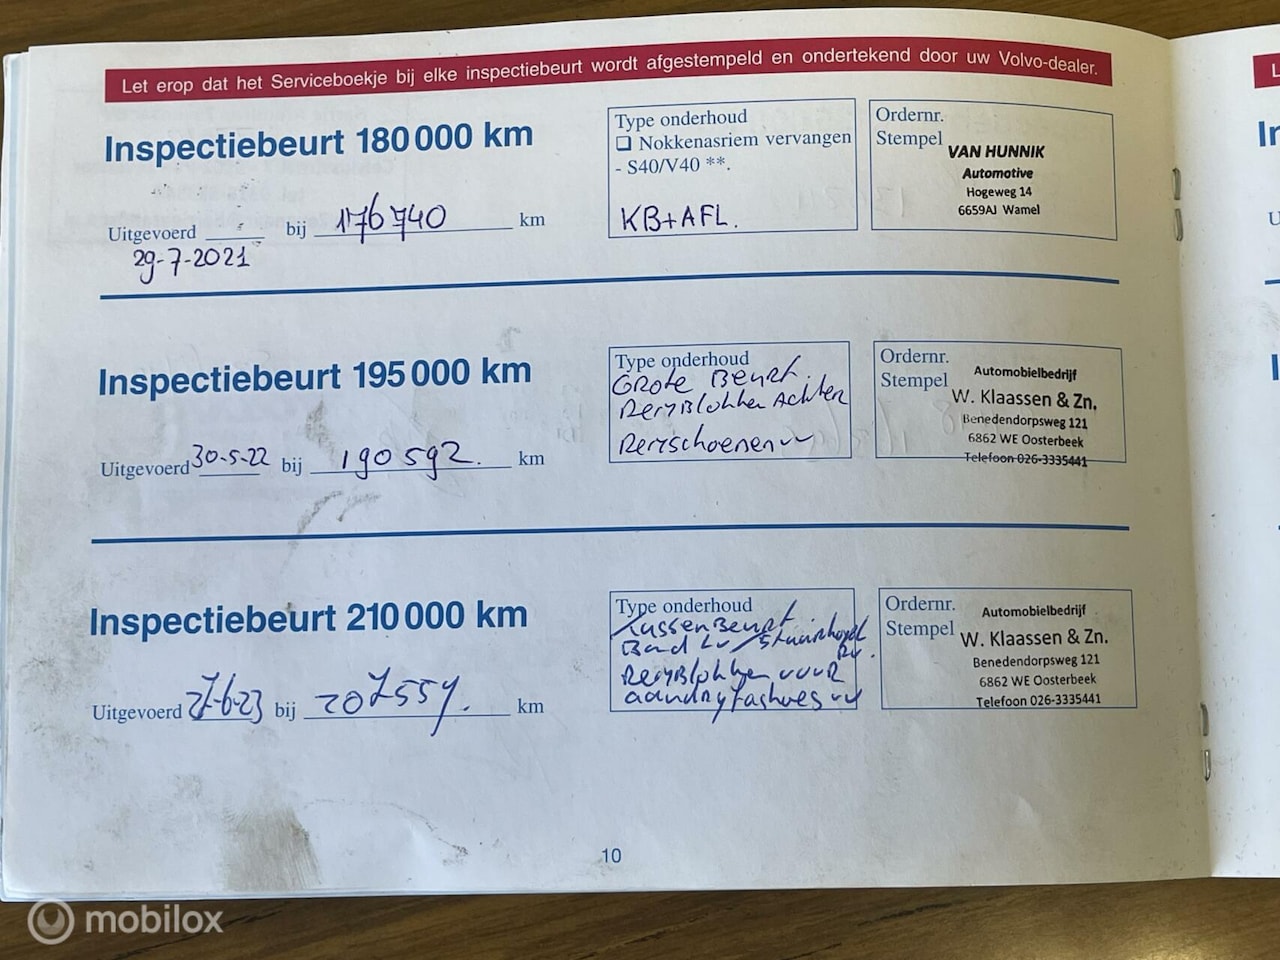 Let erop dat het Serviceboekje bij elke inspectiebeurt wordt afgestempeld en ondertekend door uw Volvo-dealer.
Inspectiebeurt 180 000 km
Uitgevoerd bij 176740 km
29-7-2021
Type onderhoud
❏ Nokkenasriem vervangen
- S40/V40 **.
KB+AFL.
Ordernr.
Stempel
VAN HUNNIK
Automotive
Hogeweg 14
6659AJ Wamel
Inspectiebeurt 195 000 km
Uitgevoerd 30-5-22 bij 190592. km
Type onderhoud
GROTE BEURT.
RemBlokken Achter
Remschoenen
Ordernr.
Stempel
Automobielbedrijf
W. Klaassen & Zn.
Benedendorpsweg 121
6862 WE Oosterbeek
Telefoon 026-3335441
Inspectiebeurt 210 000 km
Uitgevoerd 27-6-23 bij 207554. km
Type onderhoud
TussenBeurt
Band / Stuurkogel
RemBlokken voor
Ordernr.
Stempel
Automobielbedrijf
W. Klaassen & Zn.
Benedendorpsweg 121
6862 WE Oosterbeek
Telefoon 026-3335441
10
mobilox